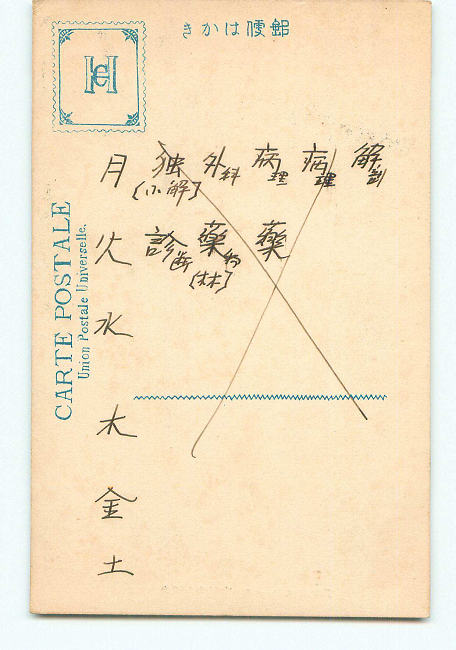 きかはび便郵
月 独 外科 病理 病理 解剖
[小解]
火 診断 薬物 薬
[林]
水
木
金
土
CARTE POSTALE
Union Postale Universelle.